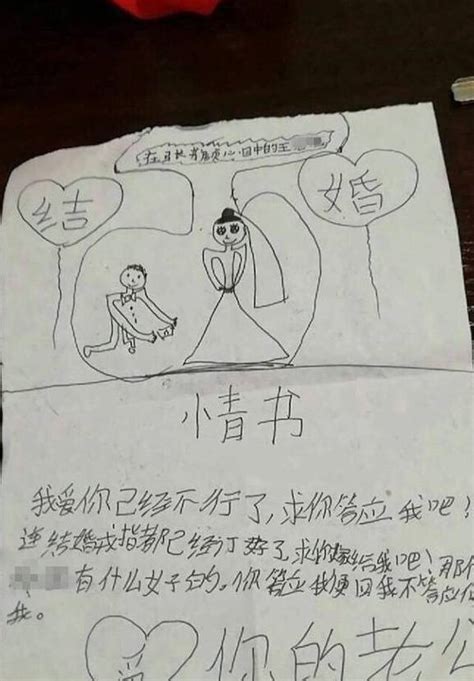 心目中的王
结 婚
情书
我爱你已经不行了,求你答应我吧!
连结婚戒指都已经订好了,求你嫁给我吧!那个
有什么女子的。你答应我便回我不答应
我。
爱 你的老公